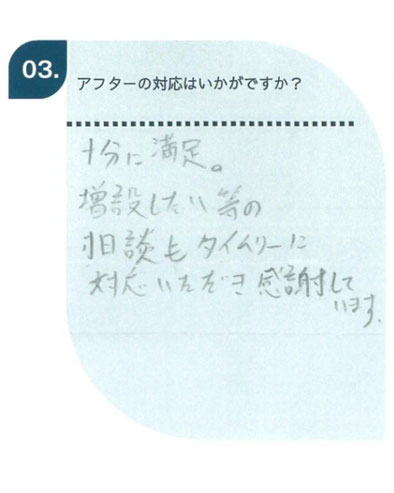 03.
アフターの対応はいかがですか？
十分に満足。
増設したい等の
相談もタイムリーに
対応いただき感謝して
います。